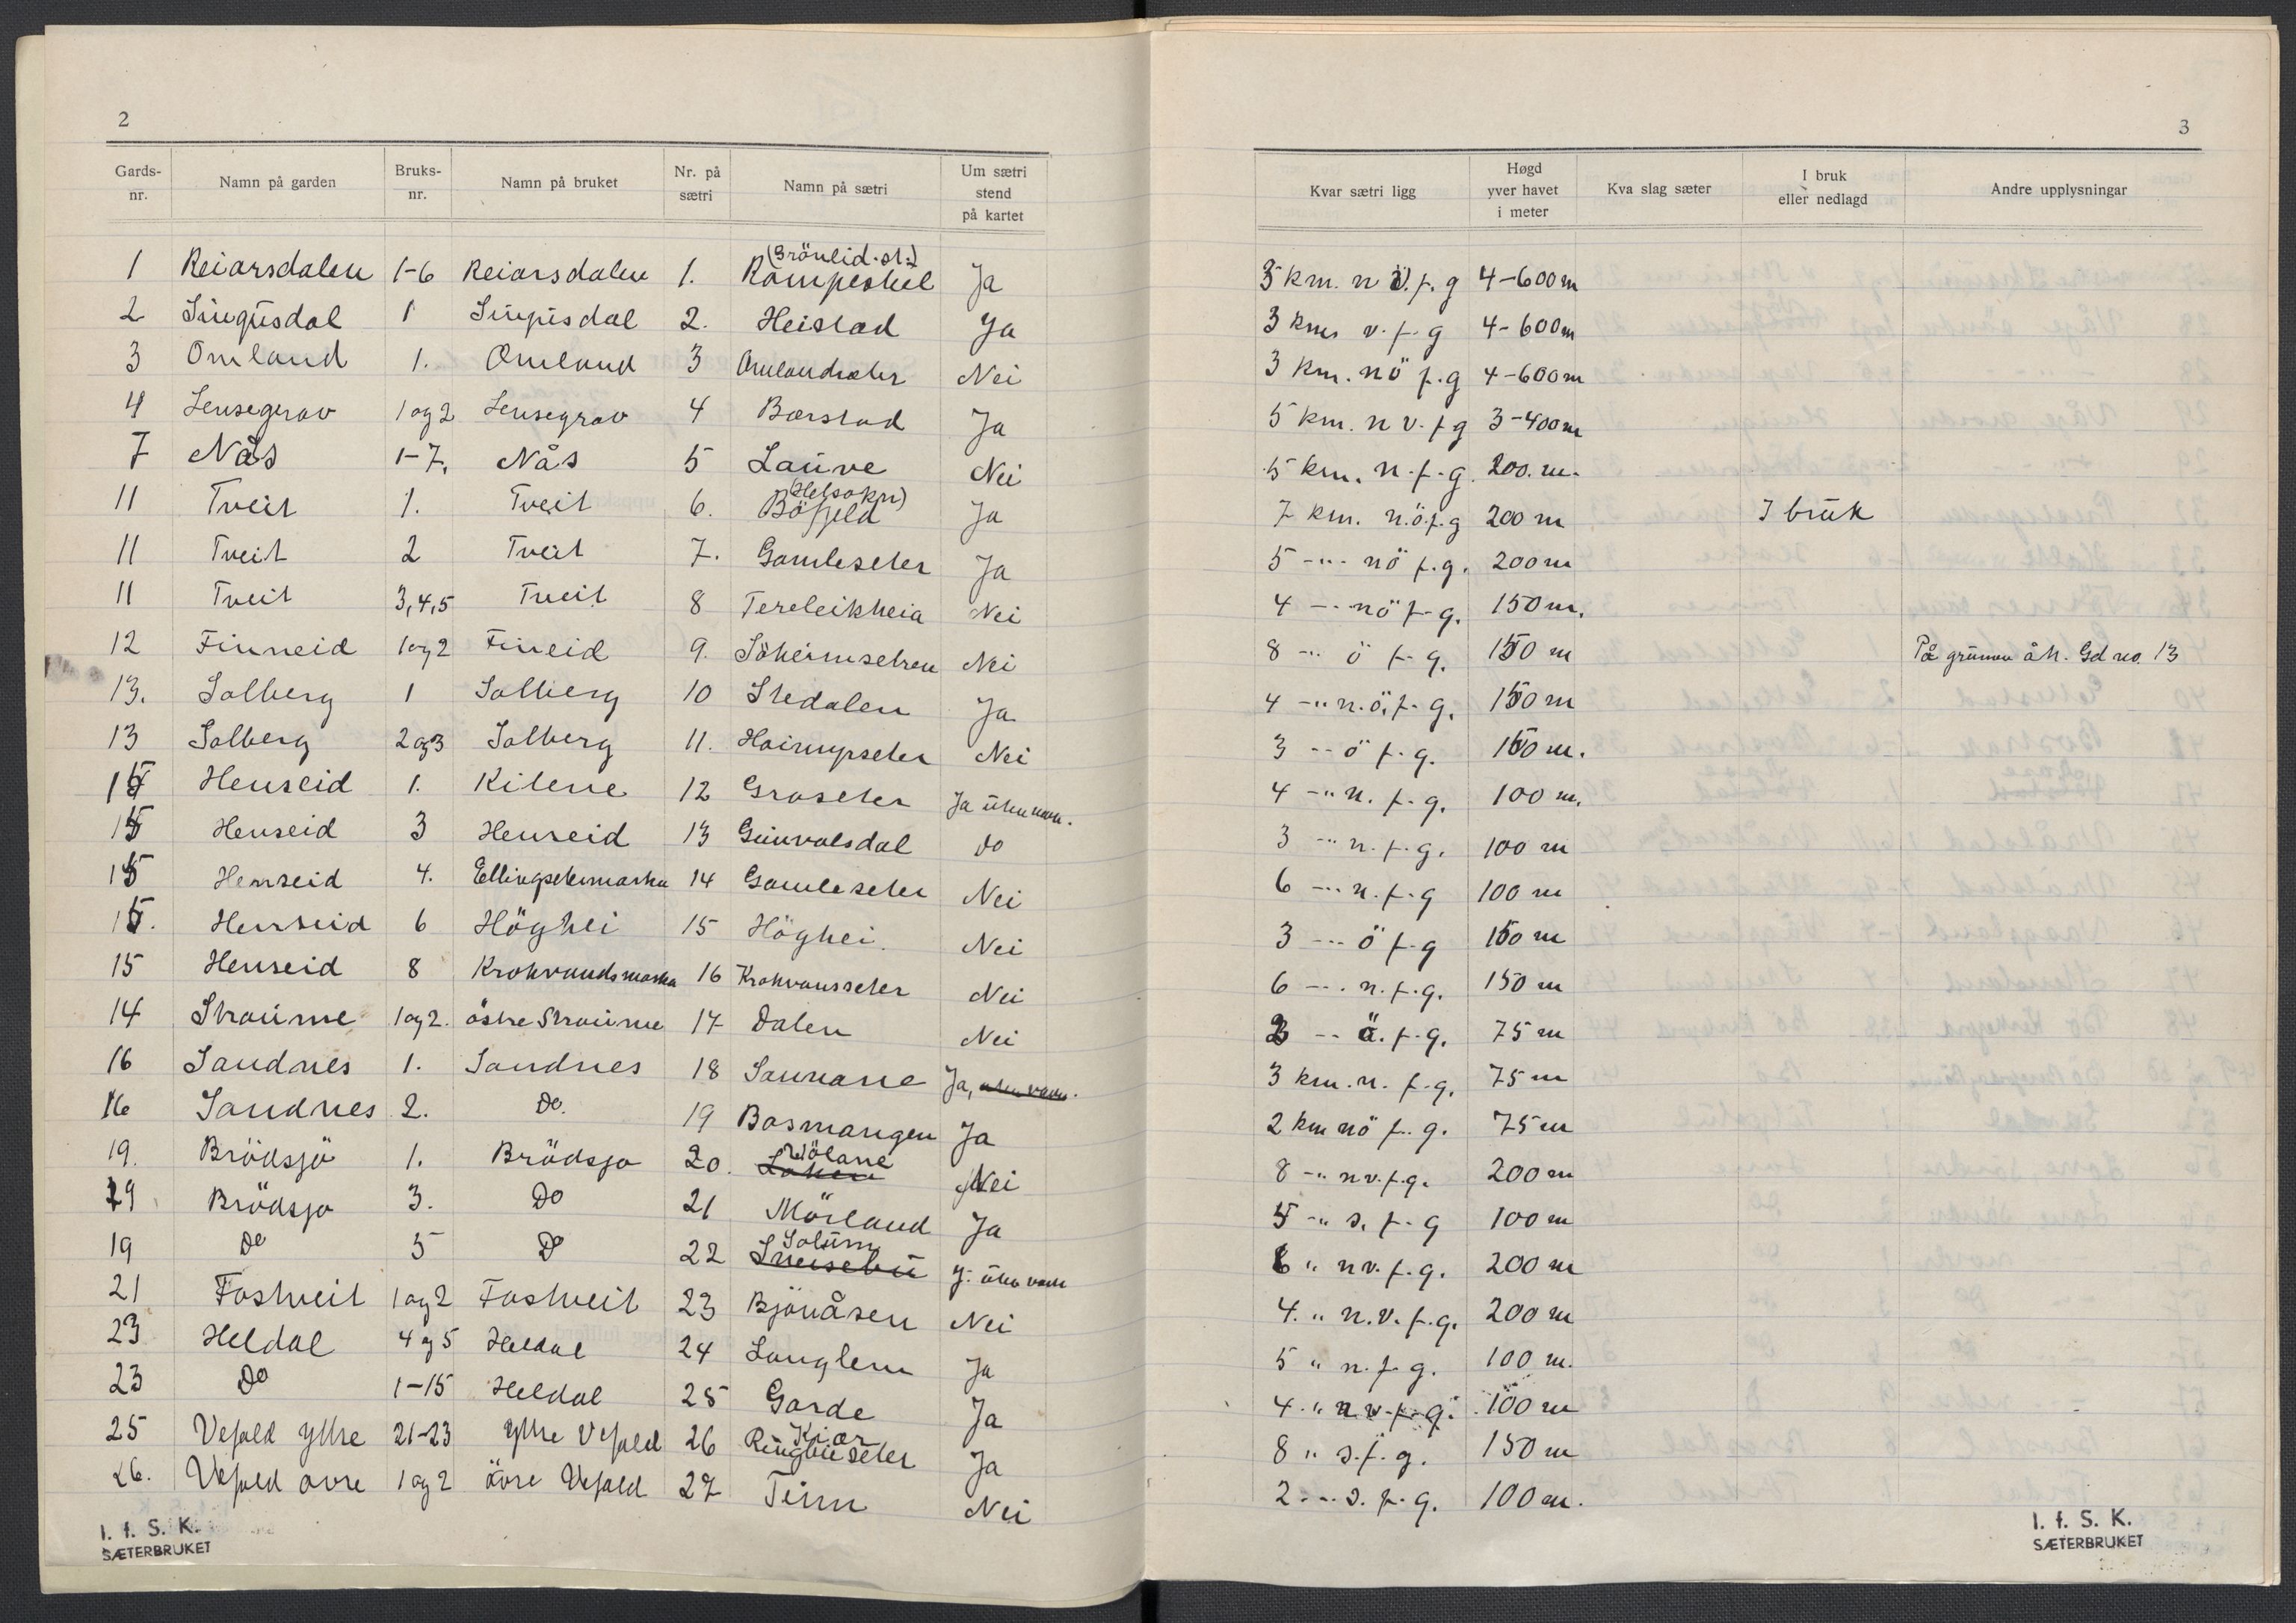 2
Gards-nr. Namn på garden Bruks-nr. Namn på bruket Nr. på sætri Namn på sætri Um sætri stend på kartet
1 Reiarsdalen 1-6 Reiarsdalen 1. (Brönlid.st.) Rompestul Ja
2 Singusdal 1 Singusdal 2. Heistad Ja
3 Omland 1. Omland 3 Omlandseter Nei
4 Lensegrav 1 og 2 Lensegrav 4 Borstad Ja
7 Nås 1-7. Nås 5 Lauve Nei
11 Tveit 1. Tveit 6. (Helsokn) Böfjeld Ja
11 Tveit 2 Tveit 7. Gamleseter Ja
11 Tveit 3,4,5 Tveit 8 Tereleikheia Nei
12 Finneid 1 og 2 Fineid 9. Söheimsetren Nei
13. Solberg 1 Solberg 10 Stedalen Ja
13 Solberg 2 og 3 Solberg 11. Heimyrseter Nei
15 Henseid 1. Kilene 12 Groseter Ja uten navn.
15 Henseid 3 Henseid 13 Gunvalsdal do
15 Henseid 4. Ellingsetermarka 14 Gamleseter Nei
15. Henseid 6 Höghei 15 Höghei. Nei
15 Henseid 8 Krokvandsmarka 16 Krokvansseter Nei
14 Straume 1 og 2. östre Straume 17 Dalen Nei
16 Sandnes 1. Sandnes 18 Sannane Ja, uten navn.
16 Sandnes 2. Do. 19 Bosmangen Ja
19. Brödsjö 1. Brödsjo 20. Nölane Nei
19 Brödsjo 3. Do 21 Mörland Ja
19 Do 5 Do 22 Solum Snesebu J. uten navn
21 Fostveit 1 og 2 Fostveit 23 Bjönåsen Nei
23 Heldal 4 og 5 Heldal 24 Langlem Ja
23 Do 1-15 Heldal 25 Garde Ja
25 Vefald Ytre 21-23 Ytre Vefald 26 Kjær Ringbuseter Ja
26. Vefald övre 1 og 2 övre Vefald 27 Teinn Nei
I. f. S. K.
SÆTERBRUKET
3
Kvar sætri ligg Høgd yver havet i meter Kva slag sæter I bruk eller nedlagd Andre upplysningar
3 km. n ö. f. g 4-600 m
3 km v. f. g 4-600 m
3 km. nö f. g 4-600 m
5 km. n v. f g 3-400 m
5 km. n. f. g. 200. m.
7 km. n.ö.f.g 200 m I bruk
5 -"- nö f. g. 200 m
4 -"- nö f. g. 150 m.
8 -"- ö f. g. 150 m På grunnen åt. Gd no. 13
4 -"- n.ö. f. g. 150 m
3 -"- ö f. g. 150 m.
4 -"- n. f. g. 100 m.
3 -"- n. f. g. 100 m
6 -"- n. f. g 100 m
3 -"- ö f. g 150 m
6 -"- n. f. g. 150 m
2 -"- ö. f. g. 75 m
3 km. n. f. g. 75 m
2 km nö f. g. 75 m
8 -"- nv. f. g. 200 m
5 -"- s. f. g 100 m
6 " nv. f. g. 200 m
4. " n.v. f. g. 200 m
5 " n. f. g. 100 m.
4 " n v. f. g. 100 m
8 " s. f. g. 150 m
2 -"- s. f. g. 100 m.
I. f. S. K.
SÆTERBRUKET